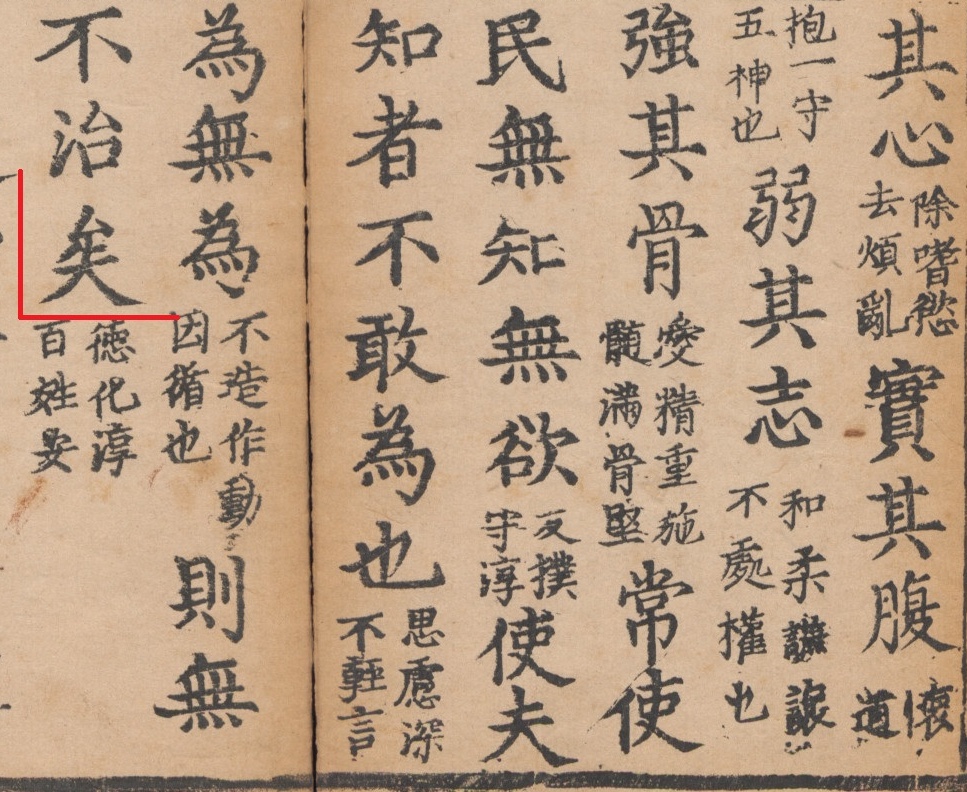 其心除嗜慾去煩亂實其腹懷道
抱一守五神也弱其志和柔謙讓不處權也
強其骨愛精重施髓滿骨堅常使
民無知無欲反撲守淳使夫
知者不敢為也思慮深不輕言
為無為不造作動因循也則無
不治矣德化淳百姓安